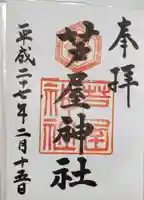 奉拝
芦屋神社
平成二十七年二月十五日